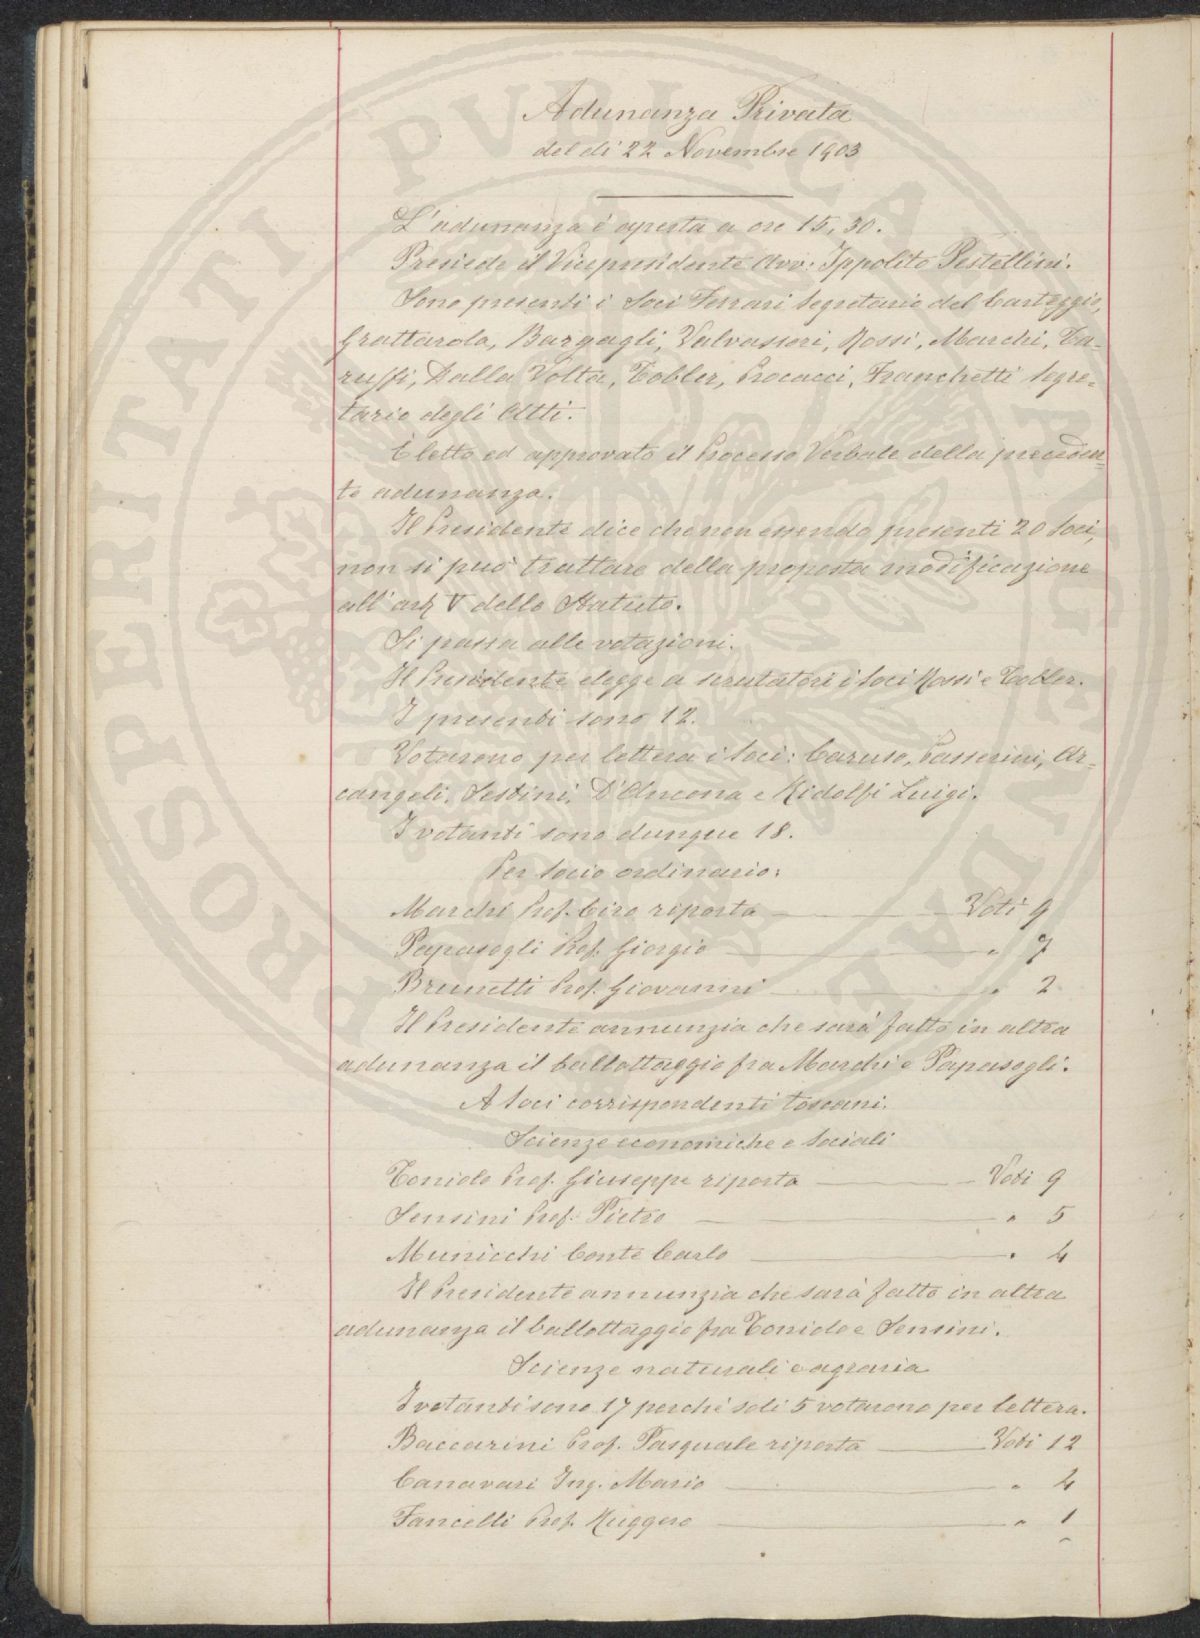 Adunanza Privata
del dì 22 Novembre 1903
L'adunanza è aperta a ore 15,30.
Presiede il Vicepresidente Avv: Ippolito Pestellini.
Sono presenti i Soci Ferrari Segretario del Carteggio,
Grattarola, Bargagli, Valvassori, Rossi, Marchi, Ca-
ruffi, Dalla Volta, Tobler, Procacci, Franchetti Segre-
tario degli Atti.
È letto ed approvato il Processo Verbale della preceden-
te adunanza.
Il Presidente dice che non essendo presenti 20 Soci,
non si può trattare della proposta modificazione
all'art V dello Statuto.
Si passa alle votazioni.
Il Presidente elegge a scrutatori i soci Rossi e Tobler.
I presenti sono 12.
Votarono per lettera i Soci: Caruso, Passerini, Ar-
cangeli, Sestini, D'Ancona e Ridolfi Luigi.
I votanti sono dunque 18.
Per Socio ordinario:
Marchi Prof. Ciro riporta Voti 9
Papasogli Prof. Giorgio " 7
Brunetti Prof. Giovanni " 2
Il Presidente annunzia che sarà fatto in altra
adunanza il ballottaggio fra Marchi e Papasogli.
A Soci corrispondenti toscani.
Scienze economiche e Sociali
Toniolo Prof. Giuseppe riporta Voti 9
Sensini Prof. Pietro " 5
Municchi Conte Carlo " 4
Il Presidente annunzia che sarà fatto in altra
adunanza il ballottaggio fra Toniolo e Sensini.
Scienze naturali e agraria
I votanti sono 17 perchè soli 5 votarono per lettera.
Baccarini Prof. Pasquale riporta Voti 12
Canavari Ing. Mario " 4
Fancelli Prof. Ruggero " 1
PROSPERITATI PVBLICAE AVGENDAE